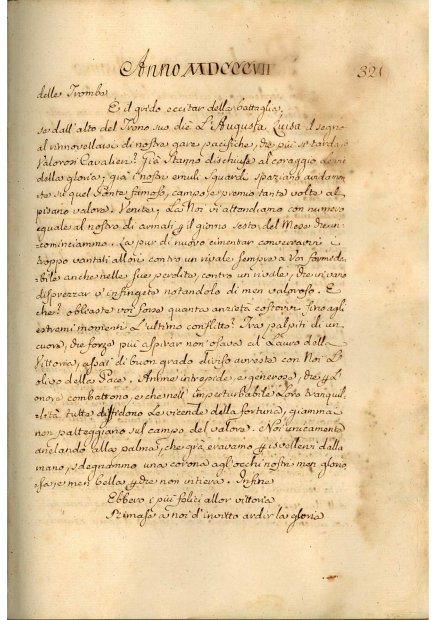 Anno MDCCCVII 321
delle Trombe
E il grido eccitar della battaglia,
se dall'alto del Trono suo diè L'Augusta Luisa il segno
al rinnovellarsi di nostre gare pacifiche, che più si tarda,
Valorosi Cavalieri? Già stanno dischiuse al coraggio le vie
della gloria; già i nostri emuli sguardi spaziano
su quel Ponte famoso, campo e premio tante volte al
pisano valore. Venite, La Noi vi attendiamo con numero
eguale al nostro di armati il giorno sesto del Mese
cominciammo. La pur di nuovo cimentar
troppo vantati allori contro un rivale sempre a Voi formida-
bile anche nelle sue perdite, contro un rivale, che in vano
disprezzar v'infingete notandolo di men valoroso. E
che? obliaste voi forse quanta ansietà fino agli
estremi momenti L'ultimo conflitto? Tra palpiti di un
cuore, che forza più aspirar non osava al Lauro della
Vittoria, assai di buon grado diviso avreste con Noi L'
olivo della Pace. Anime intrepide, e generose, che
onore combattono, e che nell'imperturbabile Loro tranquil-
lità tutte disfidono Le vicende della fortuna, giammai
non patteggiano sul campo del valore. Noi unicamente
anelando alla palma, che già eravamo svellervi dalla
mano, sdegnammo una corona agl'occhi nostri men glorio-
sa, e men bella che non intiera. Infine
Ebbero i più felici allor vittoria
Rimase a noi d'invitto ardir la gloria